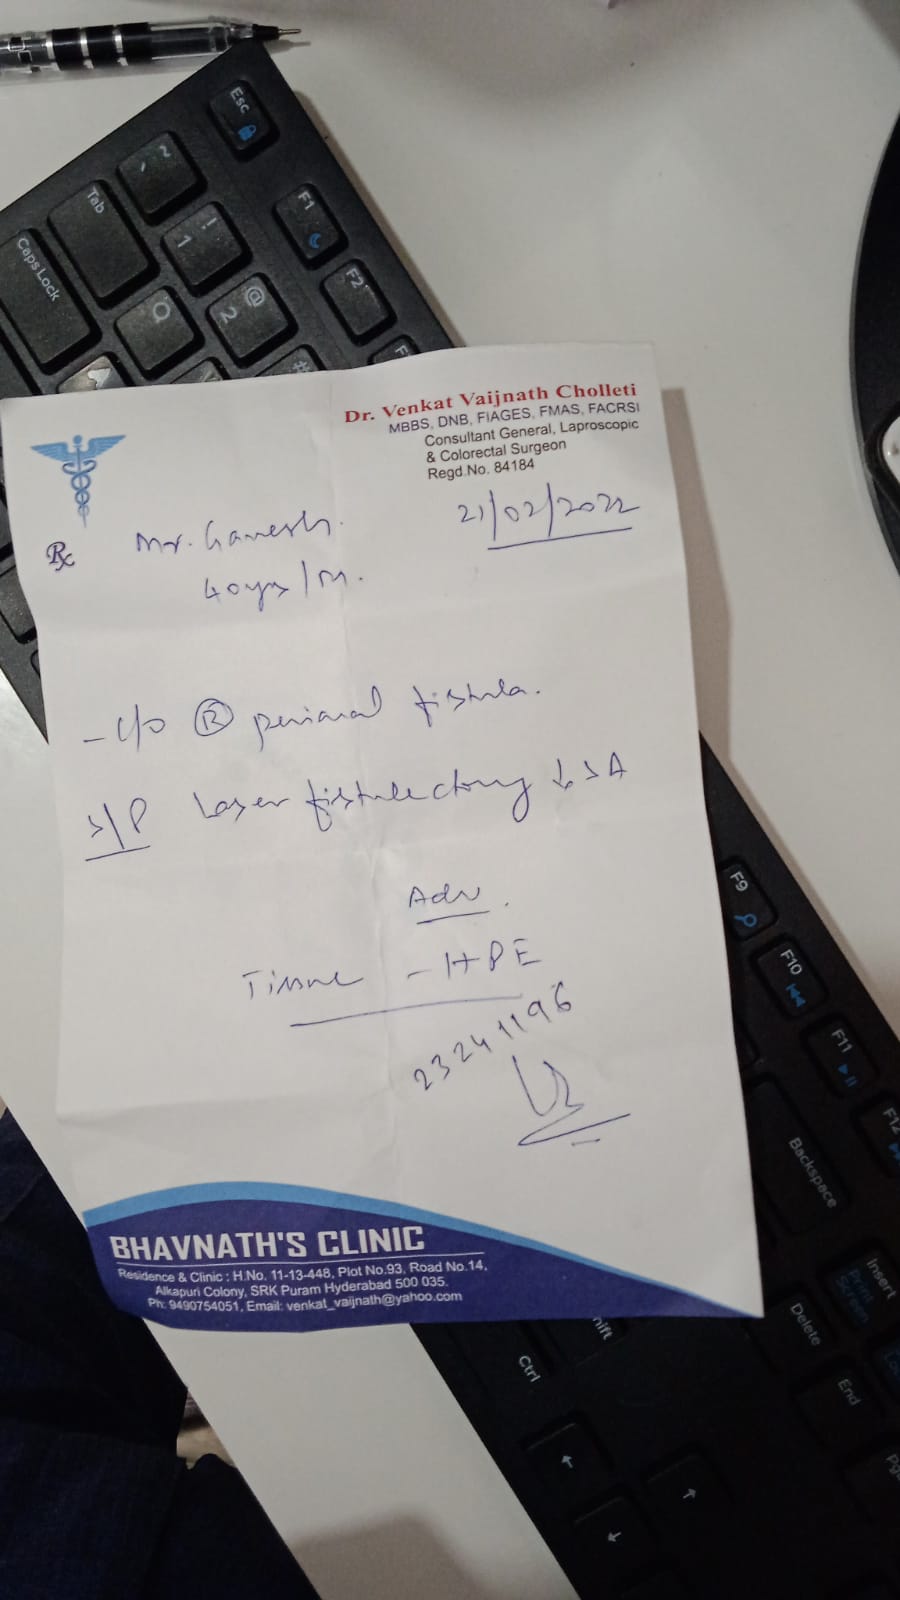 Esc
~
`
Tab
Caps Lock
!
1
@
2
Q
#
F1
F2
F
Dr. Venkat Vaijnath Cholleti
MBBS, DNB, FIAGES, FMAS, FACRSI
Consultant General, Laproscopic
& Colorectal Surgeon
Regd.No. 84184
Rx
Mr. Ganesh.
21/02/2022
40yrs/M.
- c/o Ⓡ perianal fistula.
S/P Laser fistulectomy ↓ SA
Adv.
Tissue - HPE
23241196
BHAVNATH'S CLINIC
Residence & Clinic : H.No. 11-13-448, Plot No.93, Road No.14,
Alkapuri Colony, SRK Puram Hyderabad 500 035.
Ph: 9490754051, Email: venkat_vaijnath@yahoo.com
F9
F10
F11
F12
Backspace
Insert
Print
Screen
Delete
End
hift
Ctrl